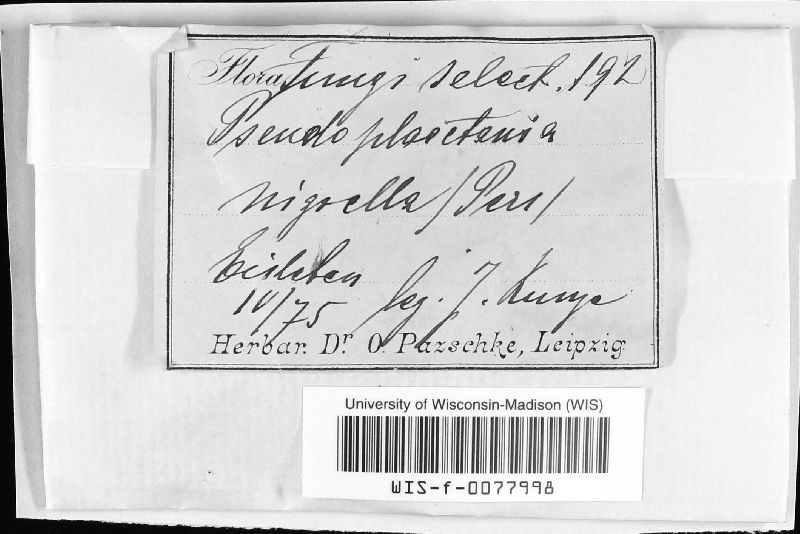 Flora Fungi select. 192
Pseudoplectania
nigrella (Pers)
Eisleben
IV/75 leg. J. Kunze
Herbar. Dr. O. Pazschke, Leipzig.
University of Wisconsin-Madison (WIS)
WIS-f-0077998